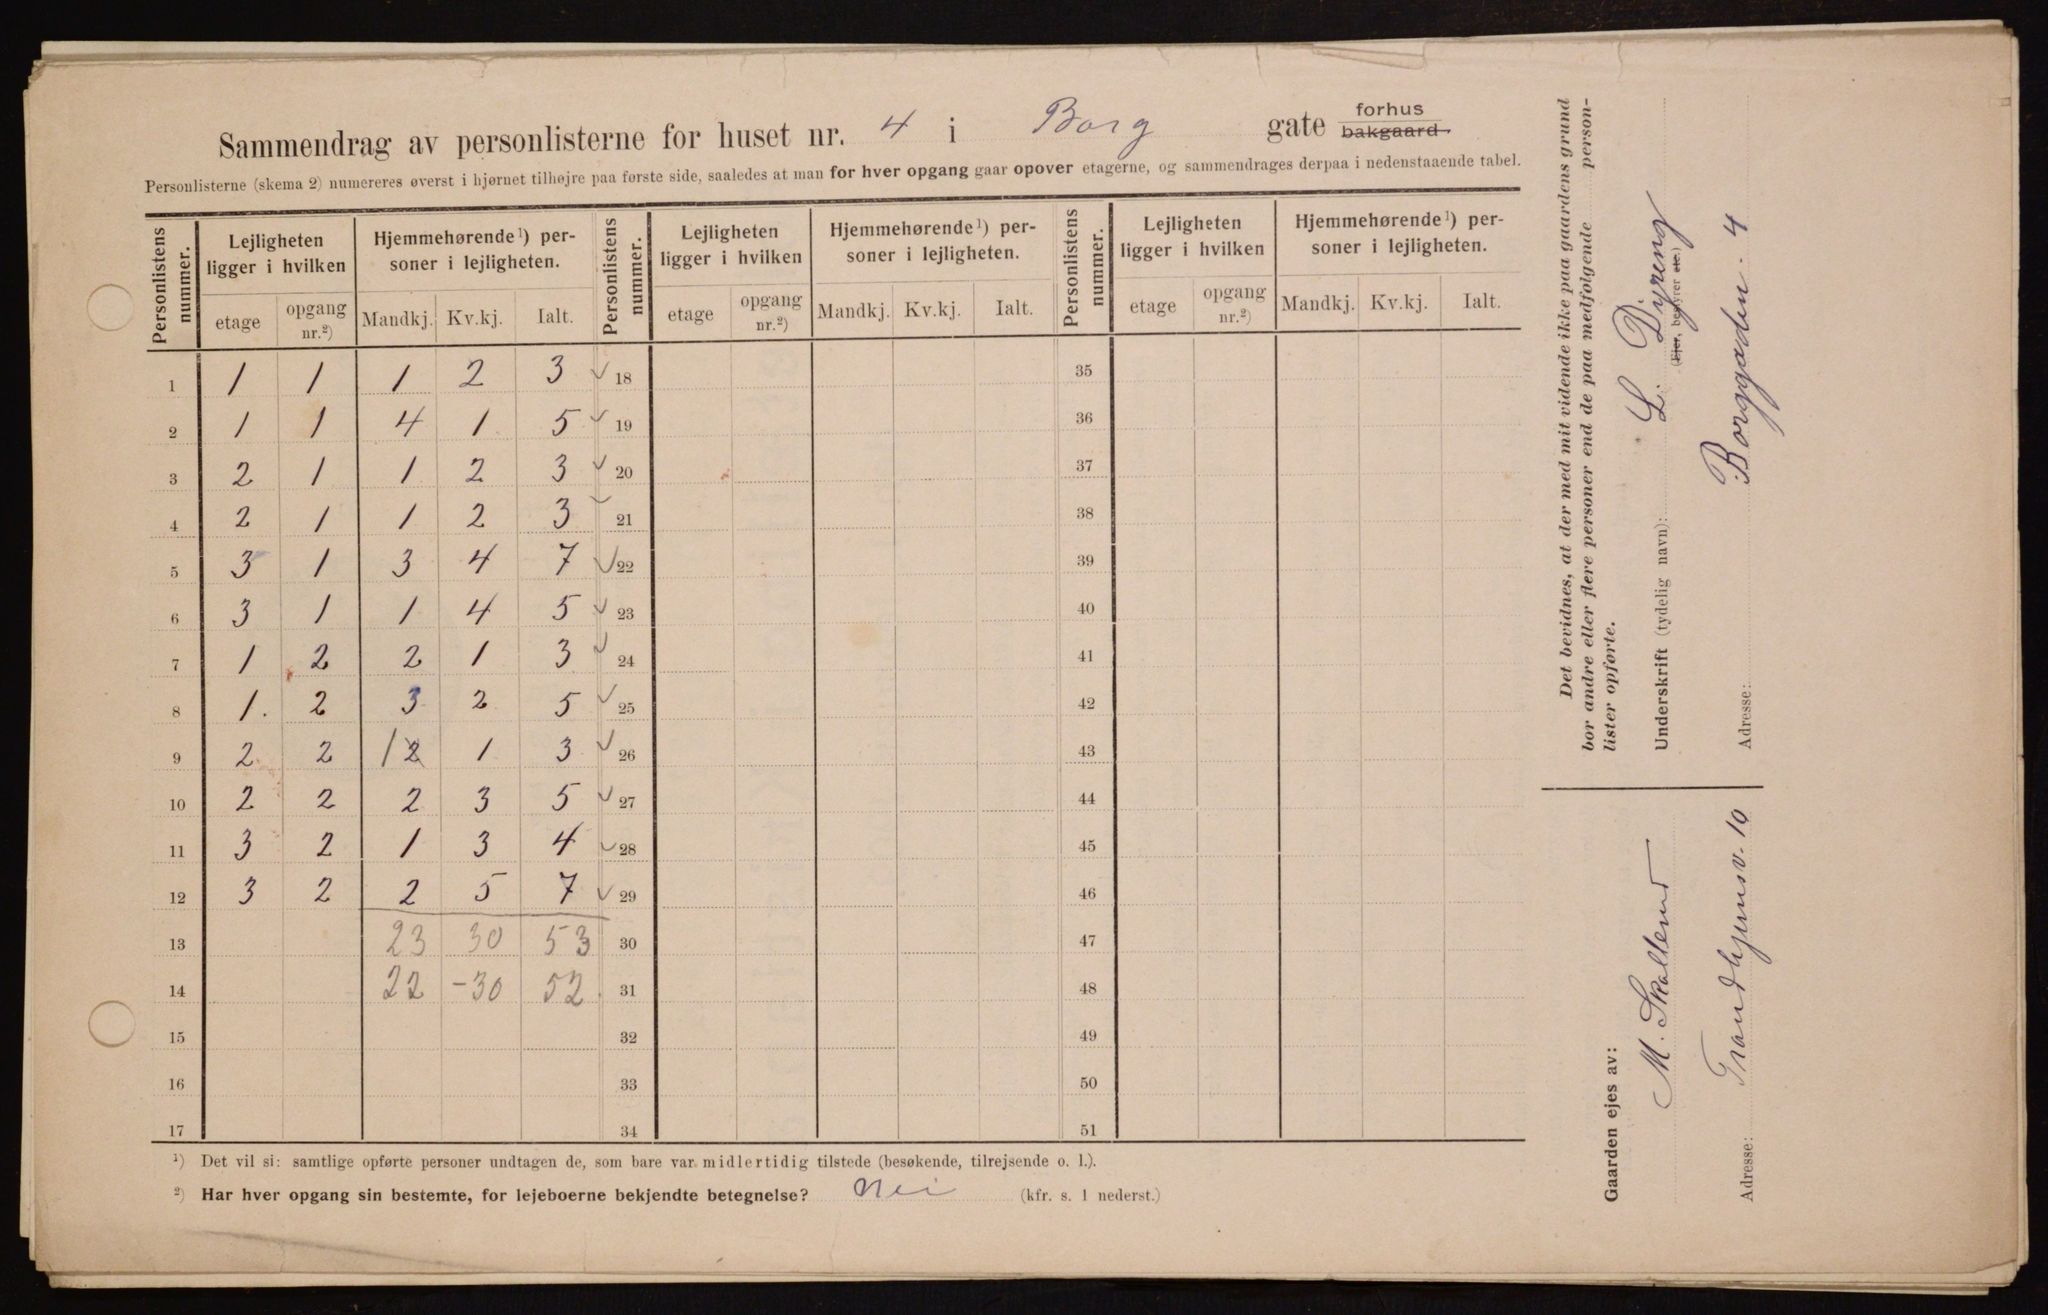 Sammendrag av personlisterne for huset nr. 4 i Borg gate forhus
bakgaard.
Personlisterne (skema 2) numereres øverst i hjørnet tilhøjre paa første side, saaledes at man for hver opgang gaar opover etagerne, og sammendrages derpaa i nedenstaaende tabel.
Personlistens nummer. Lejligheten ligger i hvilken Hjemmehørende¹) personer i lejligheten. Personlistens nummer. Lejligheten ligger i hvilken Hjemmehørende¹) personer i lejligheten. Personlistens nummer. Lejligheten ligger i hvilken Hjemmehørende¹) personer i lejligheten.
etage opgang nr.²) Mandkj. Kv.kj. Ialt. etage opgang nr.²) Mandkj. Kv.kj. Ialt. etage opgang nr.²) Mandkj. Kv.kj. Ialt.
1 1 1 1 2 3 ✓ 18 35
2 1 1 4 1 5 ✓ 19 36
3 2 1 1 2 3 ✓ 20 37
4 2 1 1 2 3 ✓ 21 38
5 3 1 3 4 7 ✓ 22 39
6 3 1 1 4 5 ✓ 23 40
7 1 2 2 1 3 ✓ 24 41
8 1. 2 3 2 5 ✓ 25 42
9 2 2 1 2 1 3 ✓ 26 43
10 2 2 2 3 5 ✓ 27 44
11 3 2 1 3 4 ✓ 28 45
12 3 2 2 5 7 ✓ 29 46
13 23 30 53 30 47
14 22 - 30 52 31 48
15 32 49
16 33 50
17 34 51
¹) Det vil si: samtlige opførte personer undtagen de, som bare var midlertidig tilstede (besøkende, tilrejsende o. l.).
²) Har hver opgang sin bestemte, for lejeboerne bekjendte betegnelse? Nei (kfr. s. 1 nederst.)
Det bevidnes, at der med mit vidende ikke paa gaardens grund
bor andre eller flere personer end de paa medfølgende personlister opførte.
Underskrift (tydelig navn): L. Dyreng
(Ejer, bestyrer etc.)
Adresse: Borggaden. 4
Gaarden ejes av:
M. Skallerud
Adresse: Trondhjemsv. 10